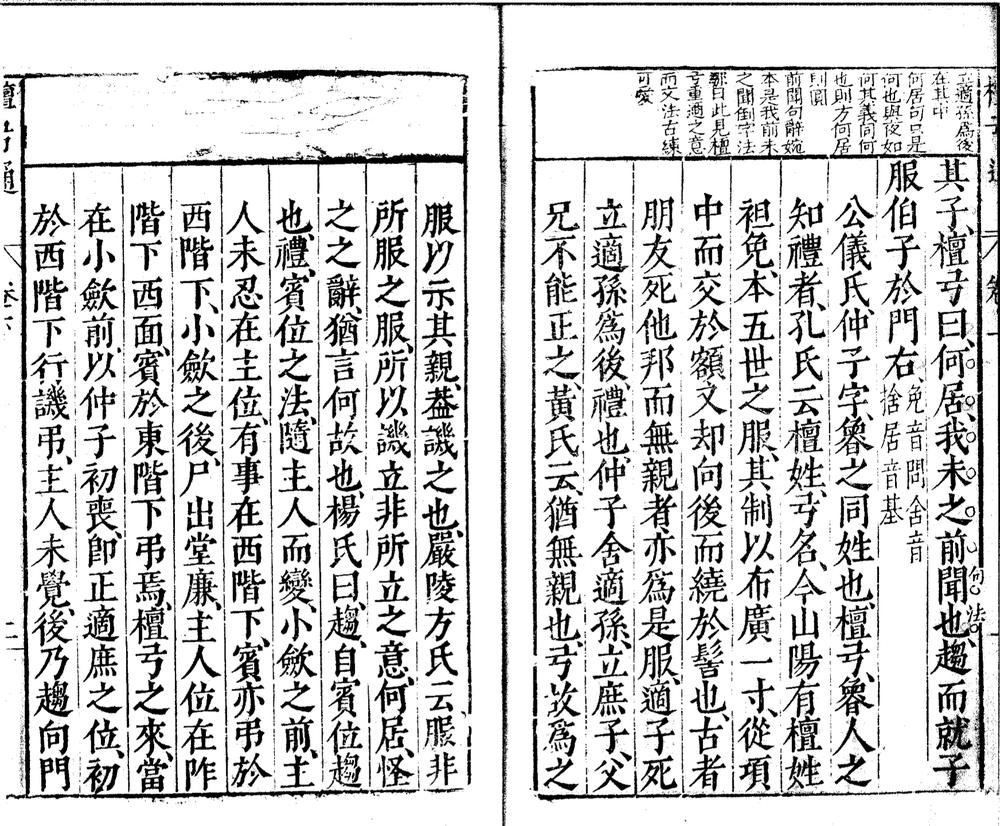 立適孫爲後
在其中
何居句只是
何也與夜如
何其義同何
也則方何居
則圓
前聞句辭婉
本是我前未
之聞倒字法
鄒曰此見檀
弓重適之意
而文法古練
可愛
其子檀弓曰何居我未之前聞也句法趨而就子
服伯子於門右免音問舍音
捨居音基
公儀氏仲子字魯之同姓也檀弓魯人之
知禮者孔氏云檀姓弓名今山陽有檀姓
袒免本五世之服其制以布廣一寸從項
中而交於額又却向後而繞於髻也古者
朋友死他邦而無親者亦爲是服適子死
立適孫爲後禮也仲子舍適孫立庶子父
兄不能正之黃氏云猶無親也弓故爲之
服以示其親葢譏之也嚴陵方氏云服非
所服之服所以譏立非所立之意何居怪
之之辭猶言何故也楊氏曰趨自賓位趨
也禮賓位之法隨主人而變小歛之前主
人未忍在主位有事在西階下賓亦弔於
西階下小歛之後尸出堂廉主人位在阼
階下西面賓於東階下弔焉檀弓之來當
在小歛前以仲子初喪卽正適庶之位初
於西階下行譏弔主人未覺後乃趨向門
檀弓通
卷上
二